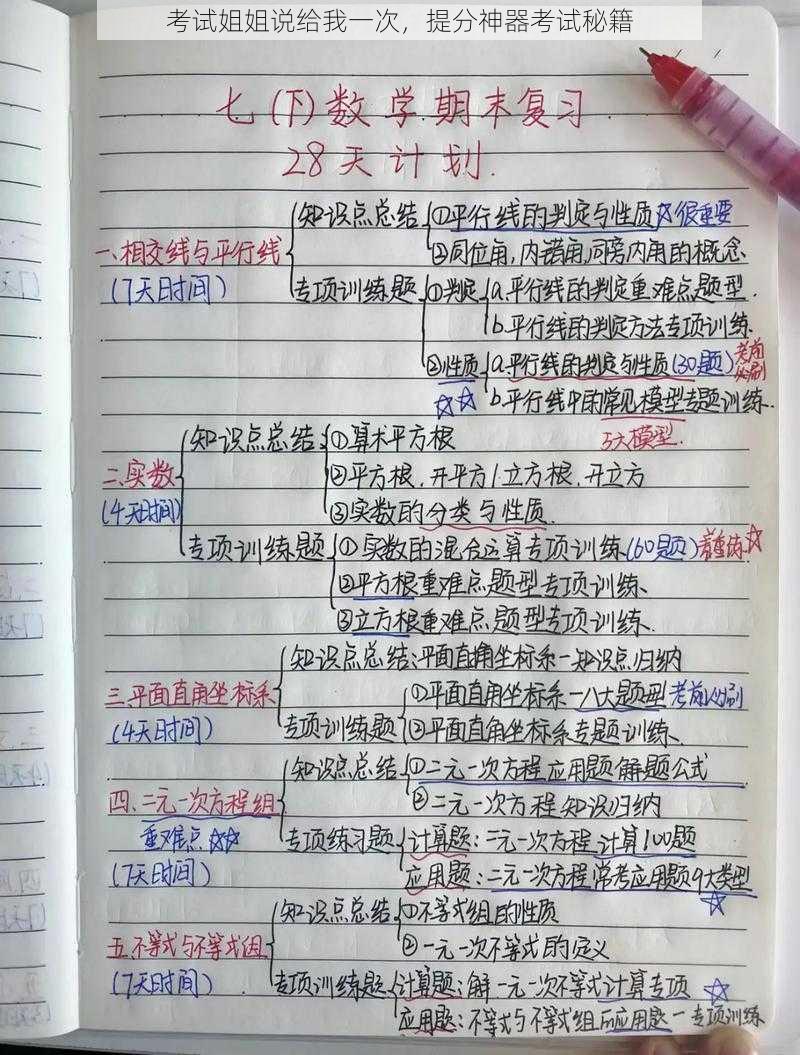 考试姐姐说给我一次，提分神器考试秘籍
七(下)数学期末复习
28天计划.
一、相交线与平行线
(7天时间)
知识点总结
①平行线的判定与性质☆很重要
②同位角,内错角,同旁内角的概念、
专项训练题
①判定
a.平行线的判定重难点题型.
b.平行线的判定方法专项训练.
②性质
☆☆
a.平行线的判定与性质(30题)考前必刷
b.平行线中的常见模型专题训练.
3大模型.
二、实数
(4天时间)
知识点总结
①算术平方根
②平方根,开平方/立方根,开立方
③实数的分类与性质.
专项训练题
①实数的混合运算专项训练(60题)着重练☆
②平方根重难点题型专项训练、
③立方根重难点题型专项训练、
三.平面直角坐标系
(4天时间)
知识点总结:平面直角坐标系一知识点归纳
专项训练题
①平面直角坐标系一八大题型考前必刷
②平面直角坐标系专题训练、
四.二元一次方程组
重难点☆☆
(7天时间)
知识点总结
①二元一次方程应用题解题公式
②二元一次方程知识归纳
专项练习题
计算题:二元一次方程计算100题
应用题:二元一次方程常考应用题9大类型
☆
五.不等式与不等式组
(7天时间)
知识点总结
①不等式组的性质
②一元一次不等式的定义
专项训练题
计算题:解一元一次不等式计算专项☆
应用题:不等式与不等式组的应用题一专项训练